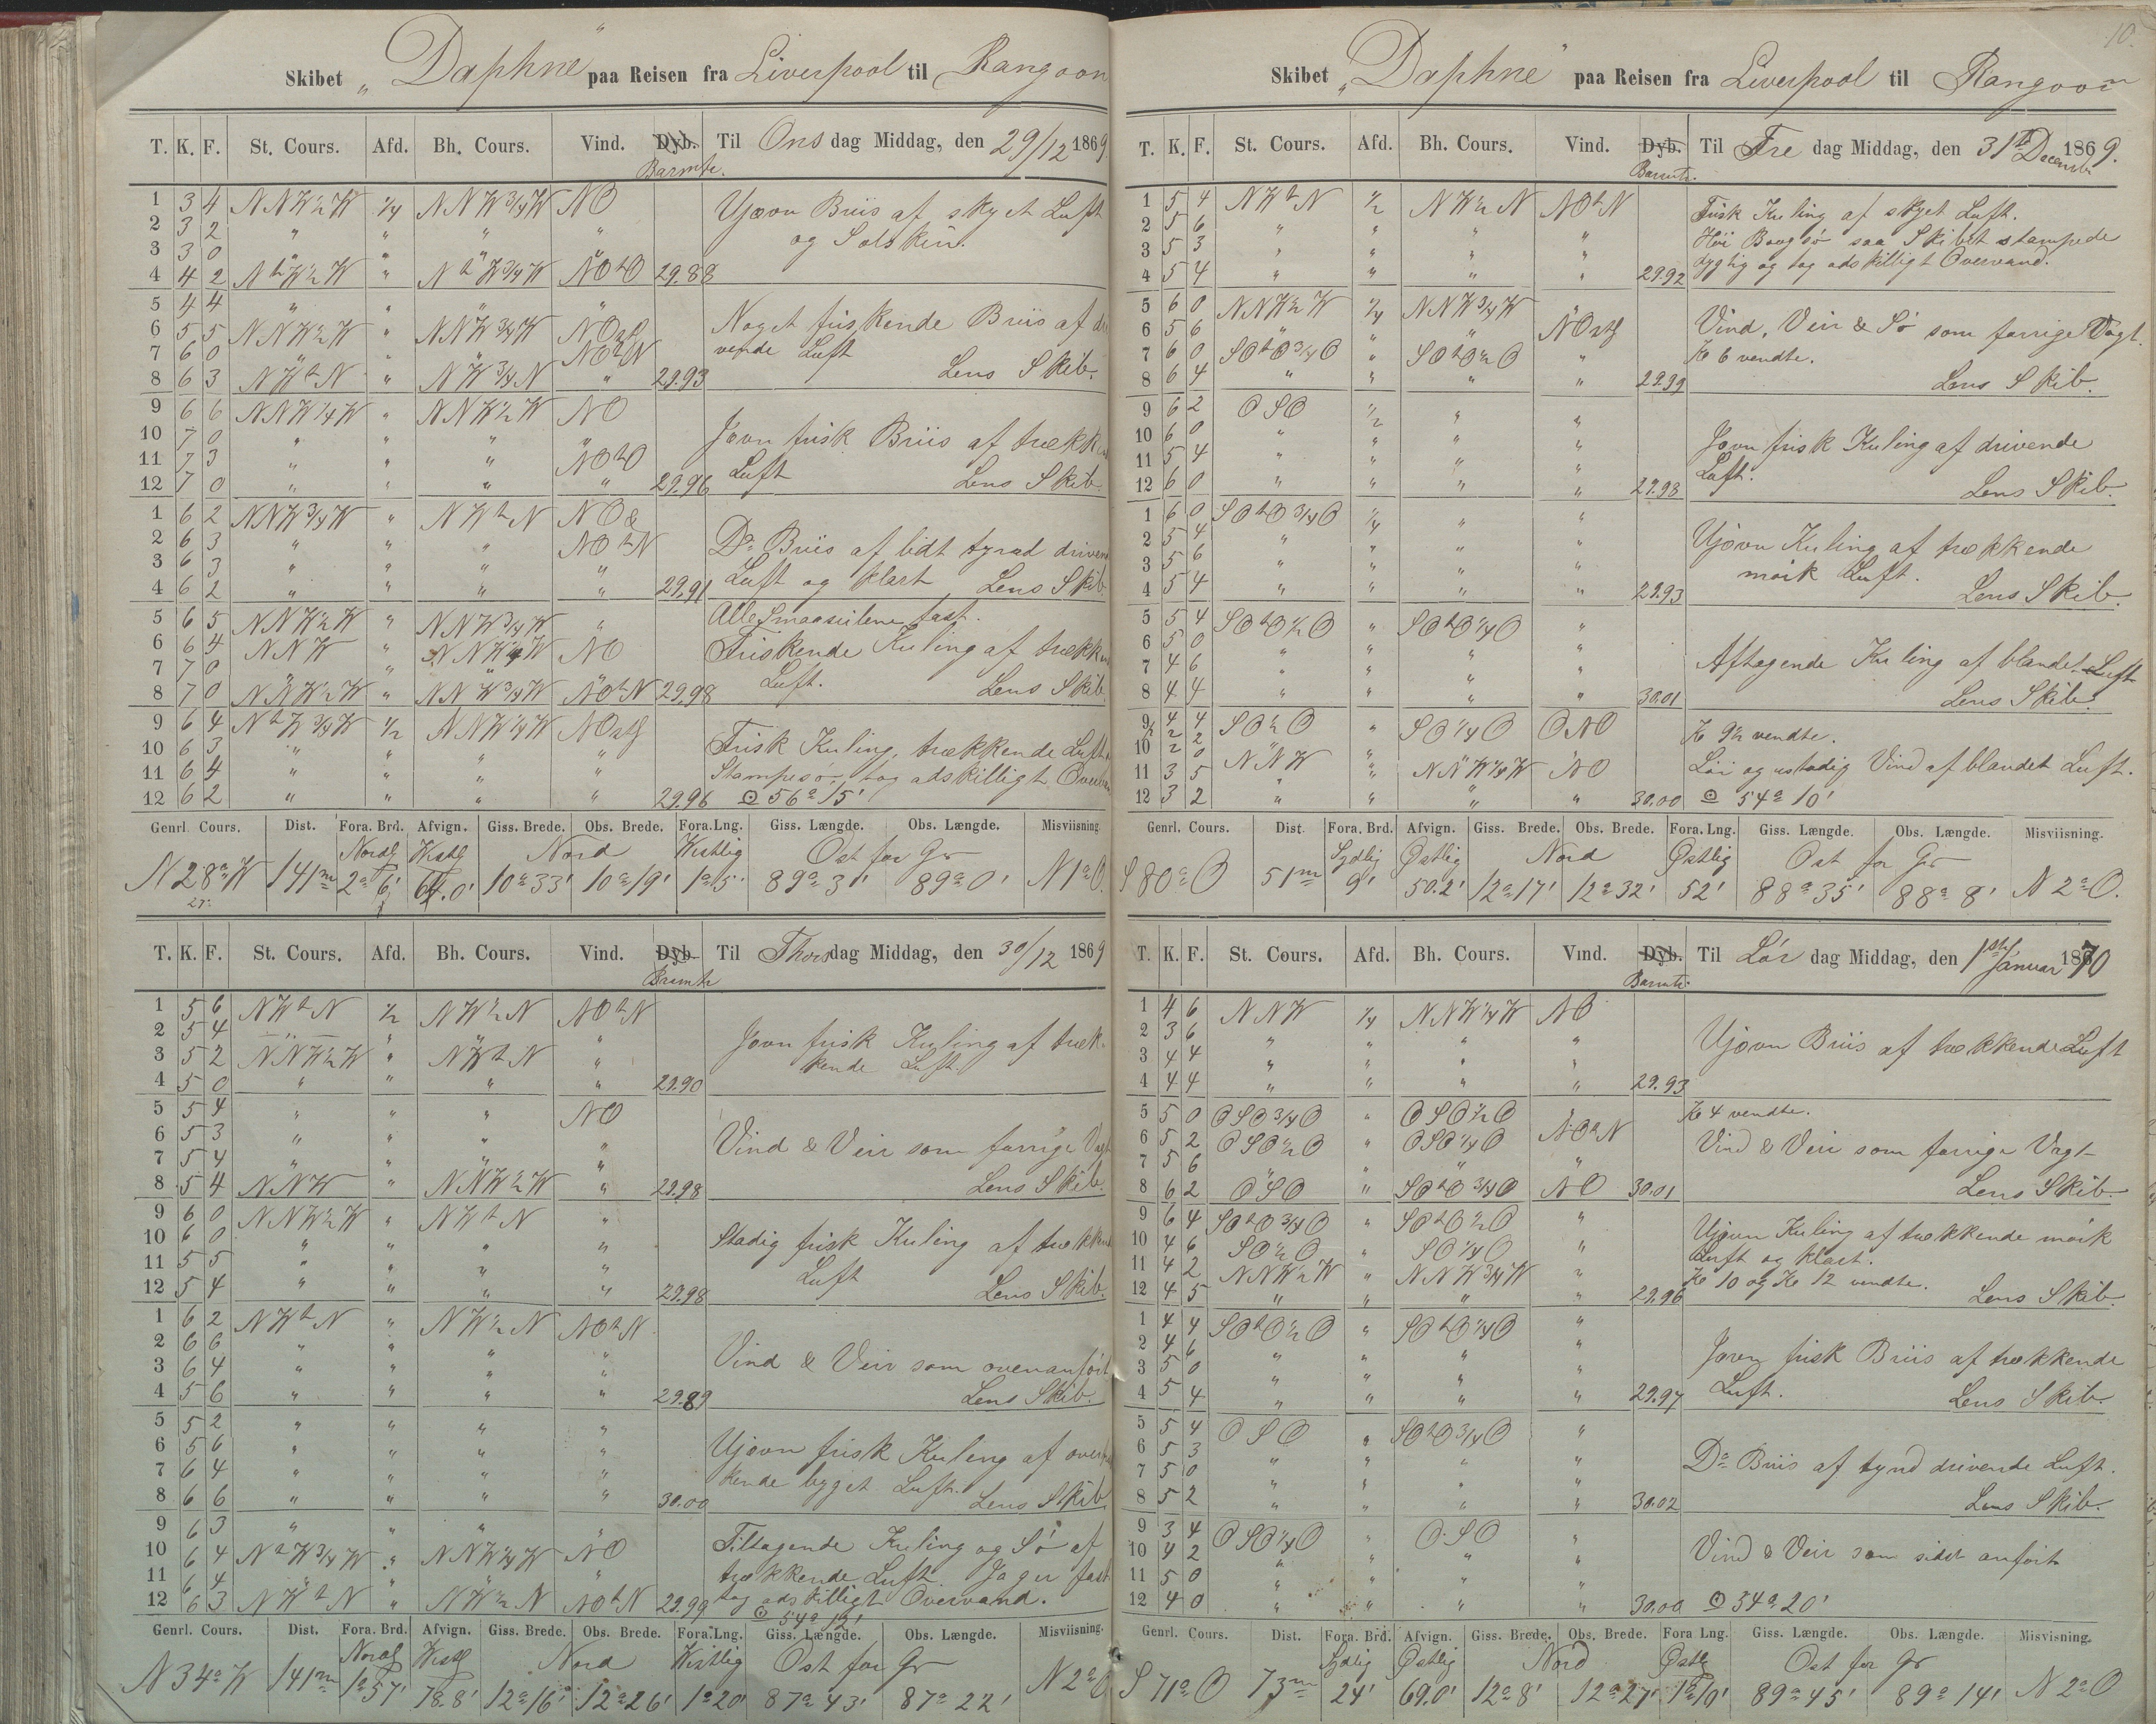 Skibet „Daphne" paa Reisen fra Liverpool til Rangoon
T. K. F. St. Cours. Afd. Bh. Cours. Vind. Dyb. Barmtr. Til Onsdag Middag, den 29/12 1869
1 3 4 NNW½W ¼ NNW¾W NO
2 3 2 " " " "
3 3 0 " " " "
4 4 2 NtW½W " NtW¾W NOtO 29.88
Ujævn Briis af skyet Luft
og Solskin.
5 4 4 " " " "
6 5 5 NNW½W " NNW¾W NOstl
7 6 0 " " " NOtN
8 6 3 NWtN " NW¾N " 29.93
Noget friskende Briis af dri
vende Luft
Lens Skib.
9 6 6 NNW¼W " NNW½W NO
10 7 0 " " " "
11 7 3 " " " NOtO
12 7 0 " " " " 29.96
Jævn frisk Briis af trækk
Luft
Lens Skib.
1 6 2 NNW¾W " NWtN NO &
2 6 3 " " " NOtN
3 6 3 " " " "
4 6 2 " " " " 29.91
Do Briis af lidt tynd driven
Luft og klart Lens Skib.
5 6 5 NNW½W " NNW¾W "
6 6 4 NNW " NNW¼W NO
7 7 0 " " " "
8 7 0 NNW½W " NNW¾W NOtN 29.98
Alle Smaaseilene fast.
Friskende Kuling af trækk
Luft. Lens Skib.
9 6 4 NtW¾W ½ NNW¼W NOstl
10 6 3 " " " "
11 6 4 " " " "
12 6 2 " " " " 29.96
Frisk Kuling, trækkende Luft.
Stampesø, tog adskilligt Overvan
☉ 56° 15'
Genrl. Cours. Dist. Fora. Brd. Afvign. Giss. Brede. Obs. Brede. Fora. Lng. Giss. Længde. Obs. Længde. Misviisning.
Nordl Westl Nord Westlig Ost for Gr
N 28° W 141m 2° 6' 64.0' 10° 33' 10° 19' 1° 5' 89° 3' 89° 0' N 1° O.
27°
T. K. F. St. Cours. Afd. Bh. Cours. Vind. Dyb. Barmtr Til Thorsdag Middag, den 30/12 1869
1 5 6 NWtN ½ NW½N NOtN
2 5 4 " " " "
3 5 2 NNW½W " NWtN "
4 5 0 " " " " 29.90
Jævn frisk Kuling af træk-
kende Luft.
5 5 4 " " " NO
6 5 3 " " " "
7 5 4 " " " "
8 5 4 NNW " NNW½W " 29.98
Vind & Veir som forrige Vagt
Lens Skib.
9 6 0 NNW½W " NWtN "
10 6 0 " " " "
11 5 5 " " " "
12 5 4 " " " " 29.98
Stadig frisk Kuling af trækken
Luft Lens Skib.
1 6 2 NWtN " NW½N NOtN
2 6 6 " " " "
3 6 4 " " " "
4 5 6 " " " " 29.89
Vind & Veir som ovenanført
Lens Skib.
5 5 2 " " " "
6 5 6 " " " "
7 6 4 " " " "
8 6 6 " " " " 30.00
Ujævn frisk Kuling af over
kende byget Luft. Lens Skib
9 6 3 " " " "
10 6 4 NtW¾W " NNW¼W NO
11 6 4 " " " "
12 6 3 NWtN " NW½N NOtN 29.99
Tiltagende Kuling og Sø af
trækkende Luft. Jager fast
tog adskilligt Overvand.
☉ 54° 12'
Genrl. Cours. Dist. Fora. Brd. Afvign. Giss. Brede. Obs. Brede. Fora. Lng. Giss. Længde. Obs. Længde. Misviisning.
Nordl Westl Nord Westlig Ost for Gr
N 34° W 141m 1° 57' 78.8' 12° 16' 12° 26' 1° 20' 87° 43' 87° 22' N 2° O
10.
Skibet „Daphne" paa Reisen fra Liverpool til Rangoon
T. K. F. St. Cours. Afd. Bh. Cours. Vind. Dyb. Barmtr. Til Fredag Middag, den 31te Decembr 1869.
1 5 4 NWtN ½ NW½N NOtN
2 5 6 " " " "
3 5 3 " " " "
4 5 4 " " " " 29.92
Frisk Kuling af skyet Luft.
Høi Bougsø saa Skibet stampede
dygtig og tog adskilligt Overvand.
5 6 0 NNW½W ¼ NNW¾W "
6 5 6 " " " NOstl
7 6 0 SOtO¾O " SOtO½O "
8 6 4 " " " " 29.99
Vind, Veir & Sø som forrige Vagt.
Kl 6 vendte.
Lens Skib.
9 6 2 OSO ½ " "
10 6 0 " " " "
11 5 4 " " " "
12 6 0 " " " " 29.98
Jævn frisk Kuling af drivende
Luft.
Lens Skib.
1 6 0 SOtO¾O ¼ " "
2 5 4 " " " "
3 5 6 " " " "
4 5 4 " " " " 29.93
Ujævn Kuling af trækkende
mørk Luft.
Lens Skib.
5 5 4 SOtO½O " SOtO¼O "
6 5 0 " " " "
7 4 6 " " " "
8 4 4 " " " " 30.01
Aftagende Kuling af blandet Luft
Lens Skib.
9½ 4 4 SO½O " SO¼O ONO
2 2
10 2 0 NNW " "
11 3 5 " " NNW¼W NO
12 3 2 " " " " 30.00
Kl 9½ vendte.
Løi og ustadig Vind af blandet Luft.
☉ 54° 10'
Genrl. Cours. Dist. Fora. Brd. Afvign. Giss. Brede. Obs. Brede. Fora. Lng. Giss. Længde. Obs. Længde. Misviisning.
Sydlig Østlig Nord Østlig Ost for Gr
S 80° O 51m 9' 50.2' 12° 17' 12° 32' 52' 88° 35' 88° 8' N 2° O.
T. K. F. St. Cours. Afd. Bh. Cours. Vind. Dyb. Barmtr. Til Lørdag Middag, den 1st Januar 1870
1 4 6 NNW ¼ NNW¼W NO
2 3 6 " " " "
3 4 4 " " " "
4 4 4 " " " " 29.93
Ujævn Briis af trækkende Luft
5 5 0 OSO¾O " OSO½O "
6 5 2 OSO½O " OSO¼O NOtN
7 5 6 " " " "
8 6 2 OSO " SOtO¾O NO 30.01
Kl 4 vendte.
Vind & Veir som forrige Vagt
Lens Skib.
9 6 4 SOtO¾O " SOtO½O "
10 4 6 SO½O " SO¼O "
11 4 2 NNW½W " NNW¾W "
12 4 5 " " " " 29.96
Ujævn Kuling af trækkende mørk
Luft og klart.
Kl 10 og Kl 12 vendte. Lens Skib.
1 4 4 SOtO½O " SOtO¼O "
2 4 6 " " " "
3 5 0 " " " "
4 5 4 " " " " 29.97
Jævn frisk Briis af trækkende
Luft. Lens Skib.
5 5 4 OSO " SOtO¾O "
6 5 3 " " " "
7 5 0 " " " "
8 5 2 " " " " 30.02
Do Briis af tynd drivende Luft.
Lens Skib.
9 3 4 OSO¼O " OSO "
10 4 2 " " " "
11 5 0 " " " "
12 4 0 " " " " 30.00
Vind & Veir som sidst anført
☉ 34° 20'
Genrl. Cours. Dist. Fora. Brd. Afvign. Giss. Brede. Obs. Brede. Fora Lng. Giss. Længde. Obs. Længde. Misvisning.
Sydlig Østlig Nord Østl Ost for Gr
S 71° O 73m 24' 69.0' 12° 8' 12° 27' 1° 10' 89° 45' 89° 14' N 2° O